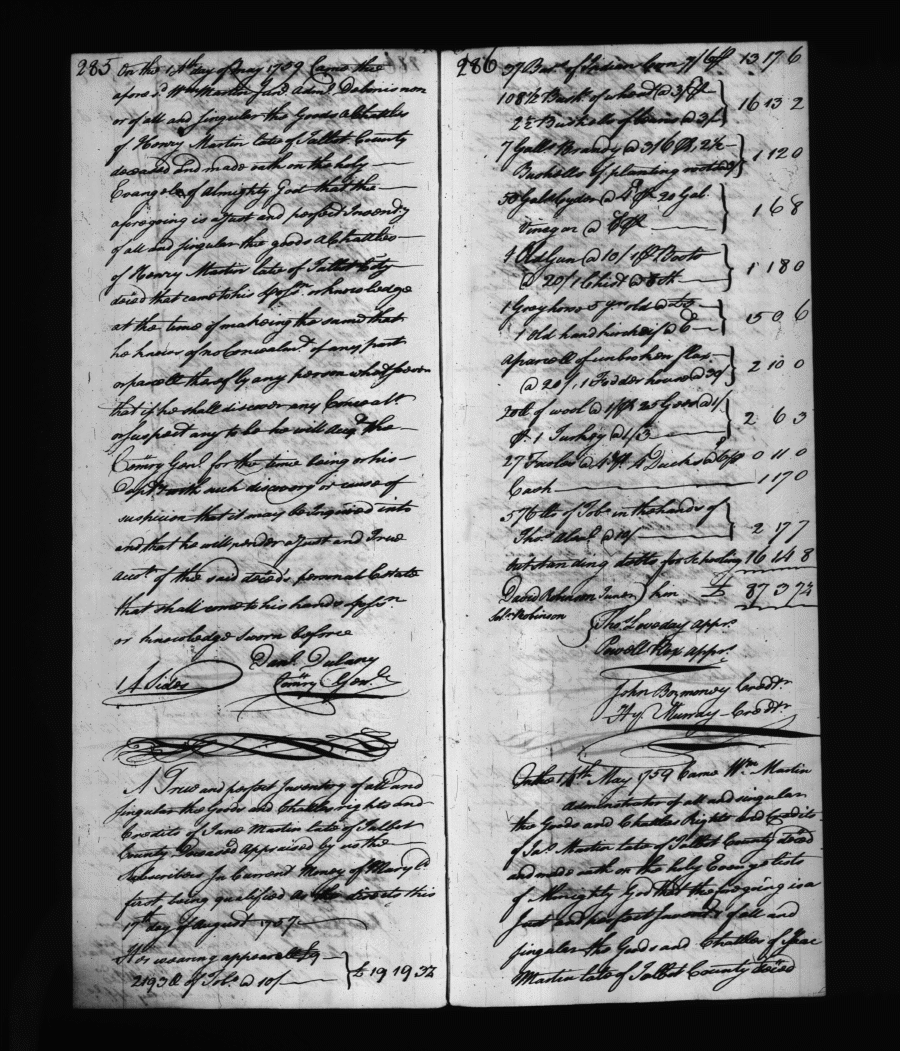 285
On the 14th day of May 1759 Came the
afores.d Wm Martin Junr Admr Debonis non
or of all and singular the Goods & Chattles
of Henry Martin late of Talbot County
deceased and made oath on the holy
Evangels of Almighty God that the
aforegoing is a Just and perfect Inventy
of all and singular the goods & Chattles
of Henry Martin late of Talbot Cty
deced that came to his Possn or knowledge
at the time of makeing the same that
he knows of no Concealmt of any part
or parcell thereof by any person whatsoever
that if he shall discover any Concealt
or suspect any to be he will acqt the
Comry Genl for the time being or his
Depty with such discovery or cause of
suspicion that it may be Inquired into
and that he will render a Just and True
acct of the said deced's personal Estate
that shall come to his hands Possn
or knowledge Sworn before
Danl Dulany
14 Sides Comry Genl
A True and perfect Inventory of all and
singular the Goods and Chattles rights and
Credits of Jane Martin late of Talbot
County Deceased Appraised by us the
Subscribers In Current Money of Maryld
first being qualified as the directs this
17th day of August 1757
Her wearing apparell £9
2193 lb of Tobo @ 10/ £ 19 19 3½
286
37 Barls of Indian Corn 7/6 P 13 17 6
108½ Bushs of wheat @ 3/ P
2½ Bushells of Beans @ 3/ 16 13 2
7 Galls Brandy @ 3/6 P, 2½
Bushells of planting 1 12 0
50 Galls Cyder @ 4d P 20 Gal
Vinegar @ 6d P 1 6 8
1 Old Gun @ 10/ 1 pr Boots
@ 20/ 1 Chist @ 8 1 18 0
1 Grey horse 5 yrs old @
1 Old hand 15 0 6
a parcell of unbroken flax
@ 20/, 1 Fodder house @ 30/ 2 10 0
20 lb of wool @ 1/ P 25 Geese @ 1/
P 1 Turkey @ 1/3 2 6 3
27 Fowles @ 4d P 4 Ducks @ 6d P 0 11 0
Cash 1 17 0
576 lb of Tobo in the hands of
Thos @ 10/ 2 17 7
outstanding debts for Schooling 16 14 8
David Robinson Junr kin £ 87 3 7½
Solo Robinson
Thos Loveday appr
Powell Cox appr
John Bozmoney Credtr
Hy Murray Credtr
On the 14th May 1759 Came Wm Martin
Administrator of all and singular
the Goods and Chattles Rights and Credits
of Jas Martin late of Talbot County deced
and made oath on the holy Evangelists
of Almighty God that the foregoing is a
Just and perfect Inventy of all and
singular the Goods and Chattles of Isaac
Martin late of Talbot County deced